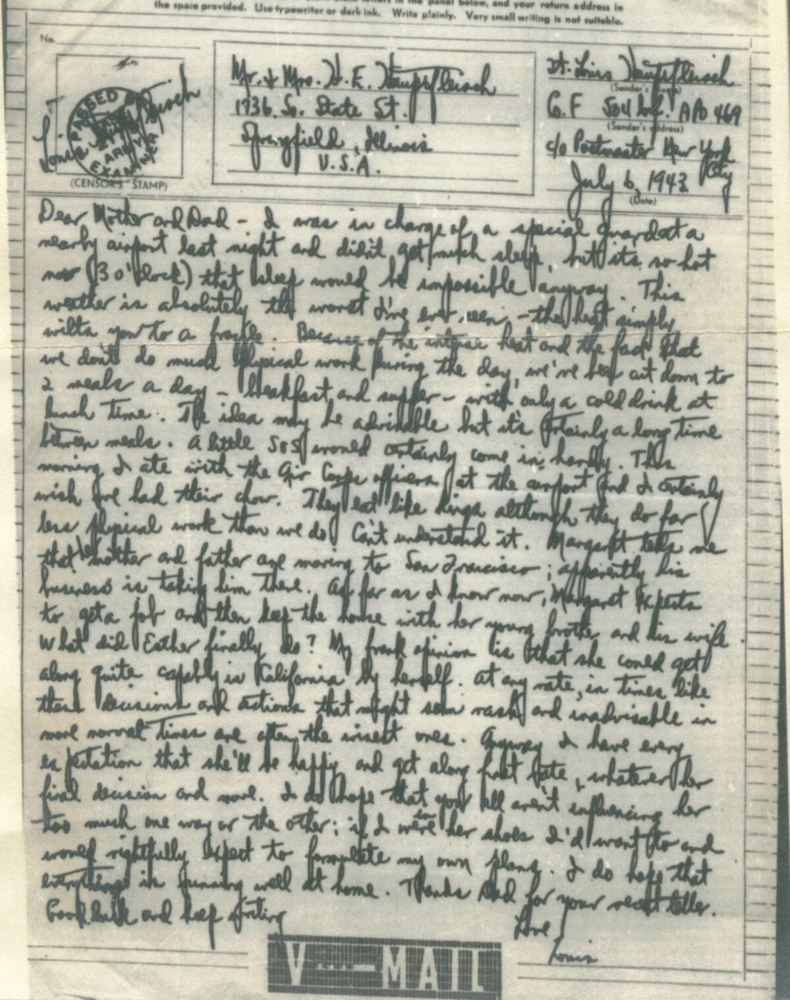 the space provided. Use typewriter or dark ink. Write plainly. Very small writing is not suitable.
No.
PASSED BY ARMY EXAMINER
(CENSOR'S STAMP)
Mr. & Mrs. H. E. Haupfleisch
1736 So. State St.
Springfield, Illinois
U.S.A.
Lt. Louis Haupfleisch
(Sender's name)
Co. F 504 Inf. APO 469
(Sender's address)
c/o Postmaster New York City
July 6, 1943
(Date)
Dear Mother and Dad - I was in charge of a special guard at a
nearby airport last night and didn't get much sleep, but its so hot
now (3 o'clock) that sleep would be impossible anyway. This
weather is absolutely the worst I've ever seen, - the heat simply
wilts you to a frazzle. Because of the intense heat and the fact that
we don't do much physical work during the day, we've been cut down to
2 meals a day - breakfast and supper - with only a cold drink at
lunch time. The idea may be advisable but it's certainly a long time
between meals. A little SOS would certainly come in handy. This
morning I ate with the Air Corps officers at the airport and I certainly
wish we had their chow. They eat like kings although they do far
less physical work than we do. Can't understand it. Margaret tells me
that her mother and father are moving to San Francisco; apparently his
business is taking him there. As far as I know now, Margaret expects
to get a job and then keep the house with her young brother and his wife.
What did Esther finally do? My frank opinion is that she could get
along quite capably in California by herself. At any rate, in times like
these decisions and actions that might seem rash and inadvisable in
more normal times are often the wisest ones. Anyway I have every
expectation that she'll be happy and get along first rate, whatever her
final decision and move. I do hope that you all aren't influencing her
too much one way or the other; if I were in her shoes I'd want to and
would rightfully expect to formulate my own plans. I do hope that
everything is running well at home. Thanks Dad for your recent letter.
Good luck and keep writing
Love
Louis
V···—MAIL